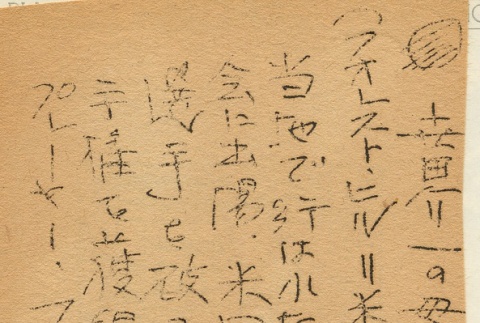 世界一の
(フオレスト・ヒル=米
当地で行はれた
会に出場、米国
選手を破
手権を獲得
プレーヤー、マ